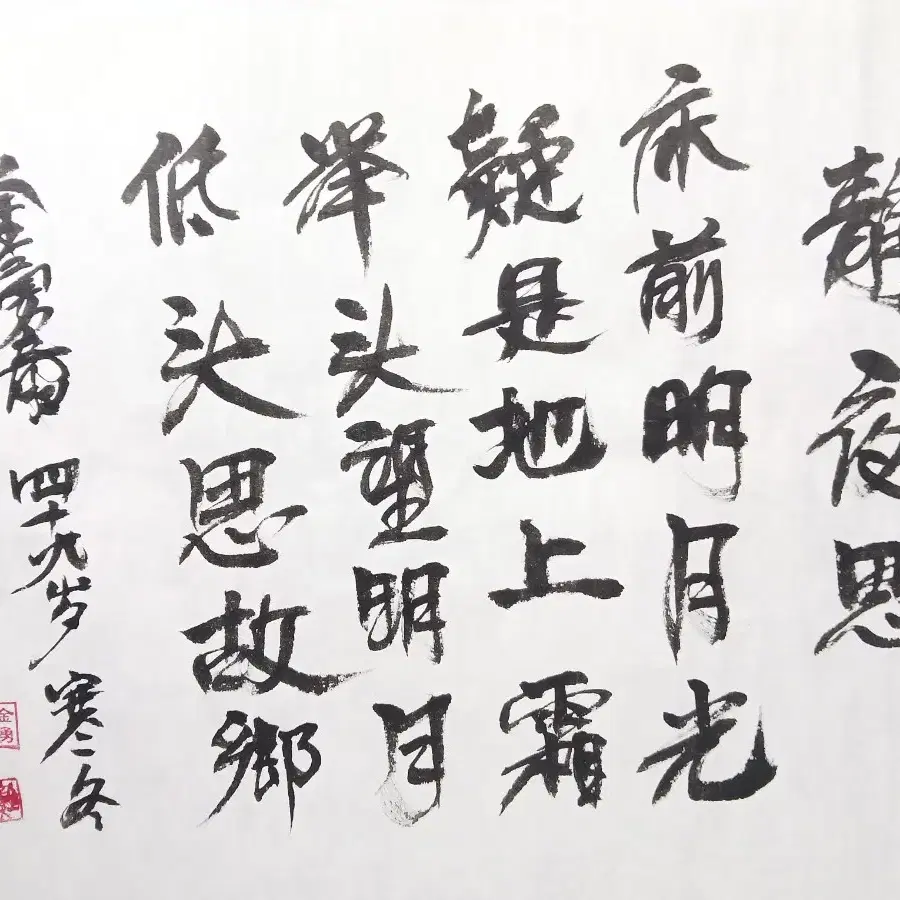 静夜思
床前明月光
疑是地上霜
举头望明月
低头思故鄉
金勇书 四十九岁 寒冬
金勇